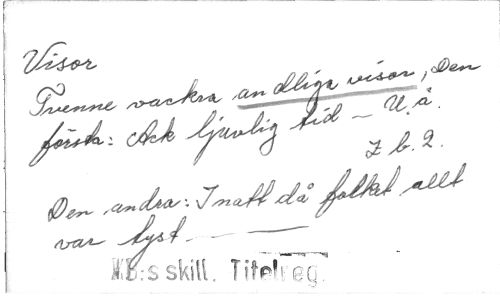 Visor
Tvenne vackra andliga visor, Den
första: Ack ljuvlig tid — U. å.
Z b. 2.
Den andra: I natt då folket allt
var tyst — —
KB:s skill. Titelreg.